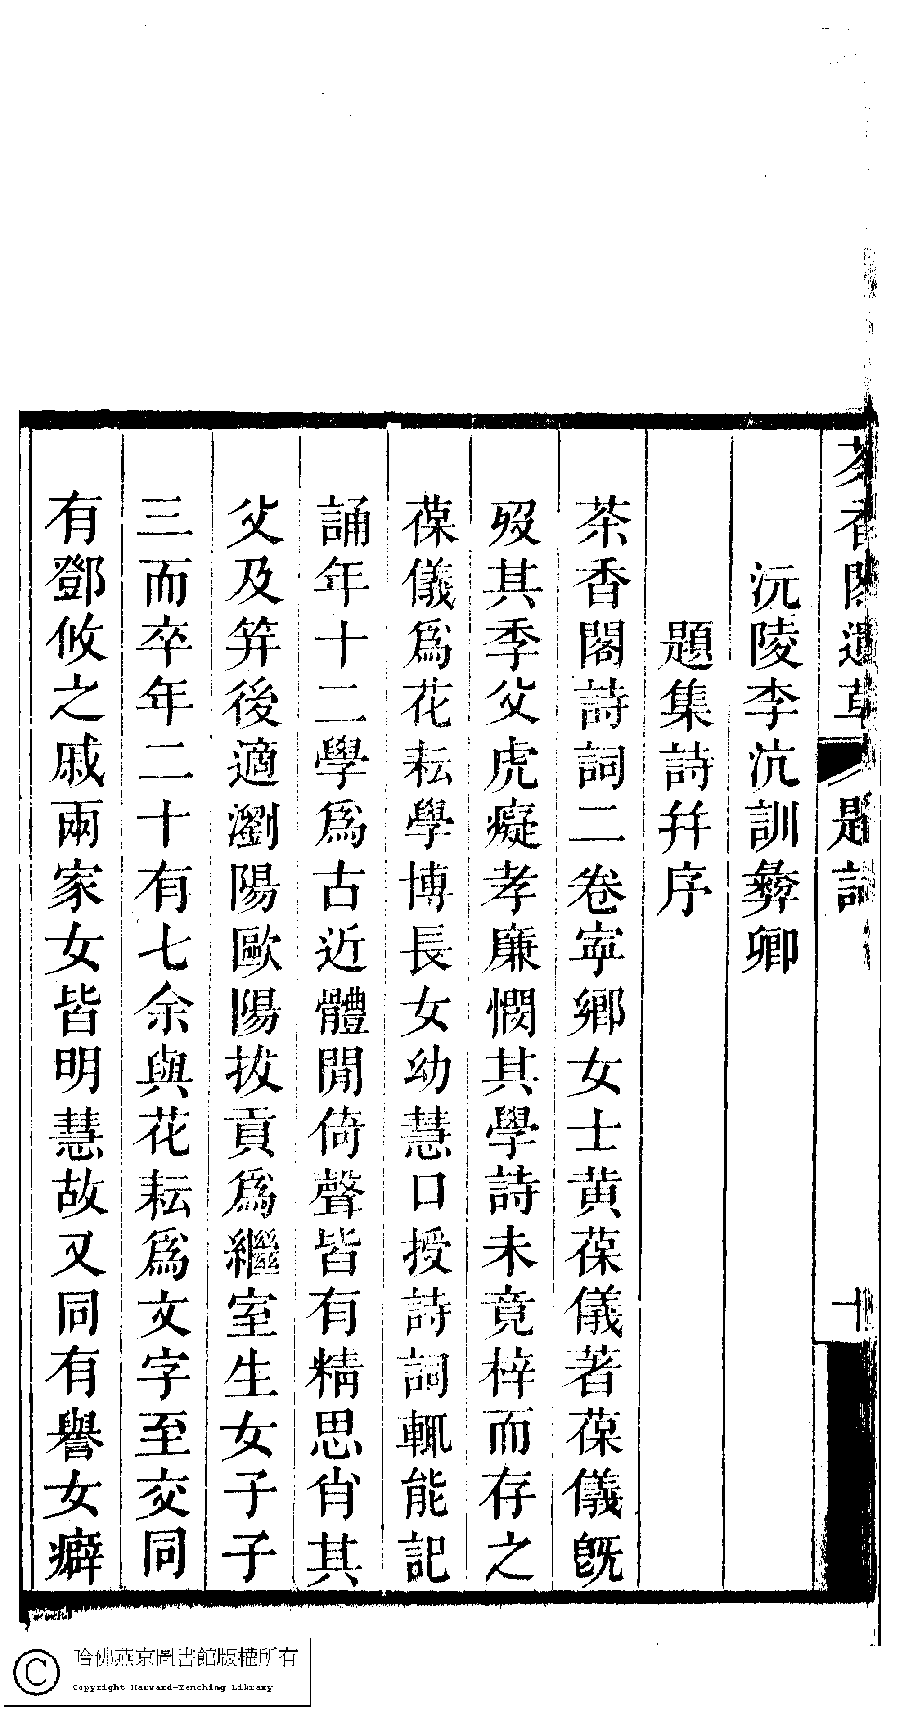 茶香閣遺草 題詞 十
沅陵李沆訓彝卿
題集詩幷序
茶香閣詩詞二卷寧鄉女士黃葆儀著葆儀旣
歿其季父虎癡孝廉憫其學詩未竟梓而存之
葆儀爲花耘學博長女幼慧口授詩詞輒能記
誦年十二學爲古近體閒倚聲皆有精思肖其
父及笄後適瀏陽歐陽拔貢爲繼室生女子子
三而卒年二十有七余與花耘爲文字至交同
有鄧攸之戚兩家女皆明慧故又同有譽女癖
哈佛燕京圖書館版權所有
Copyright Harvard-Yenching Library